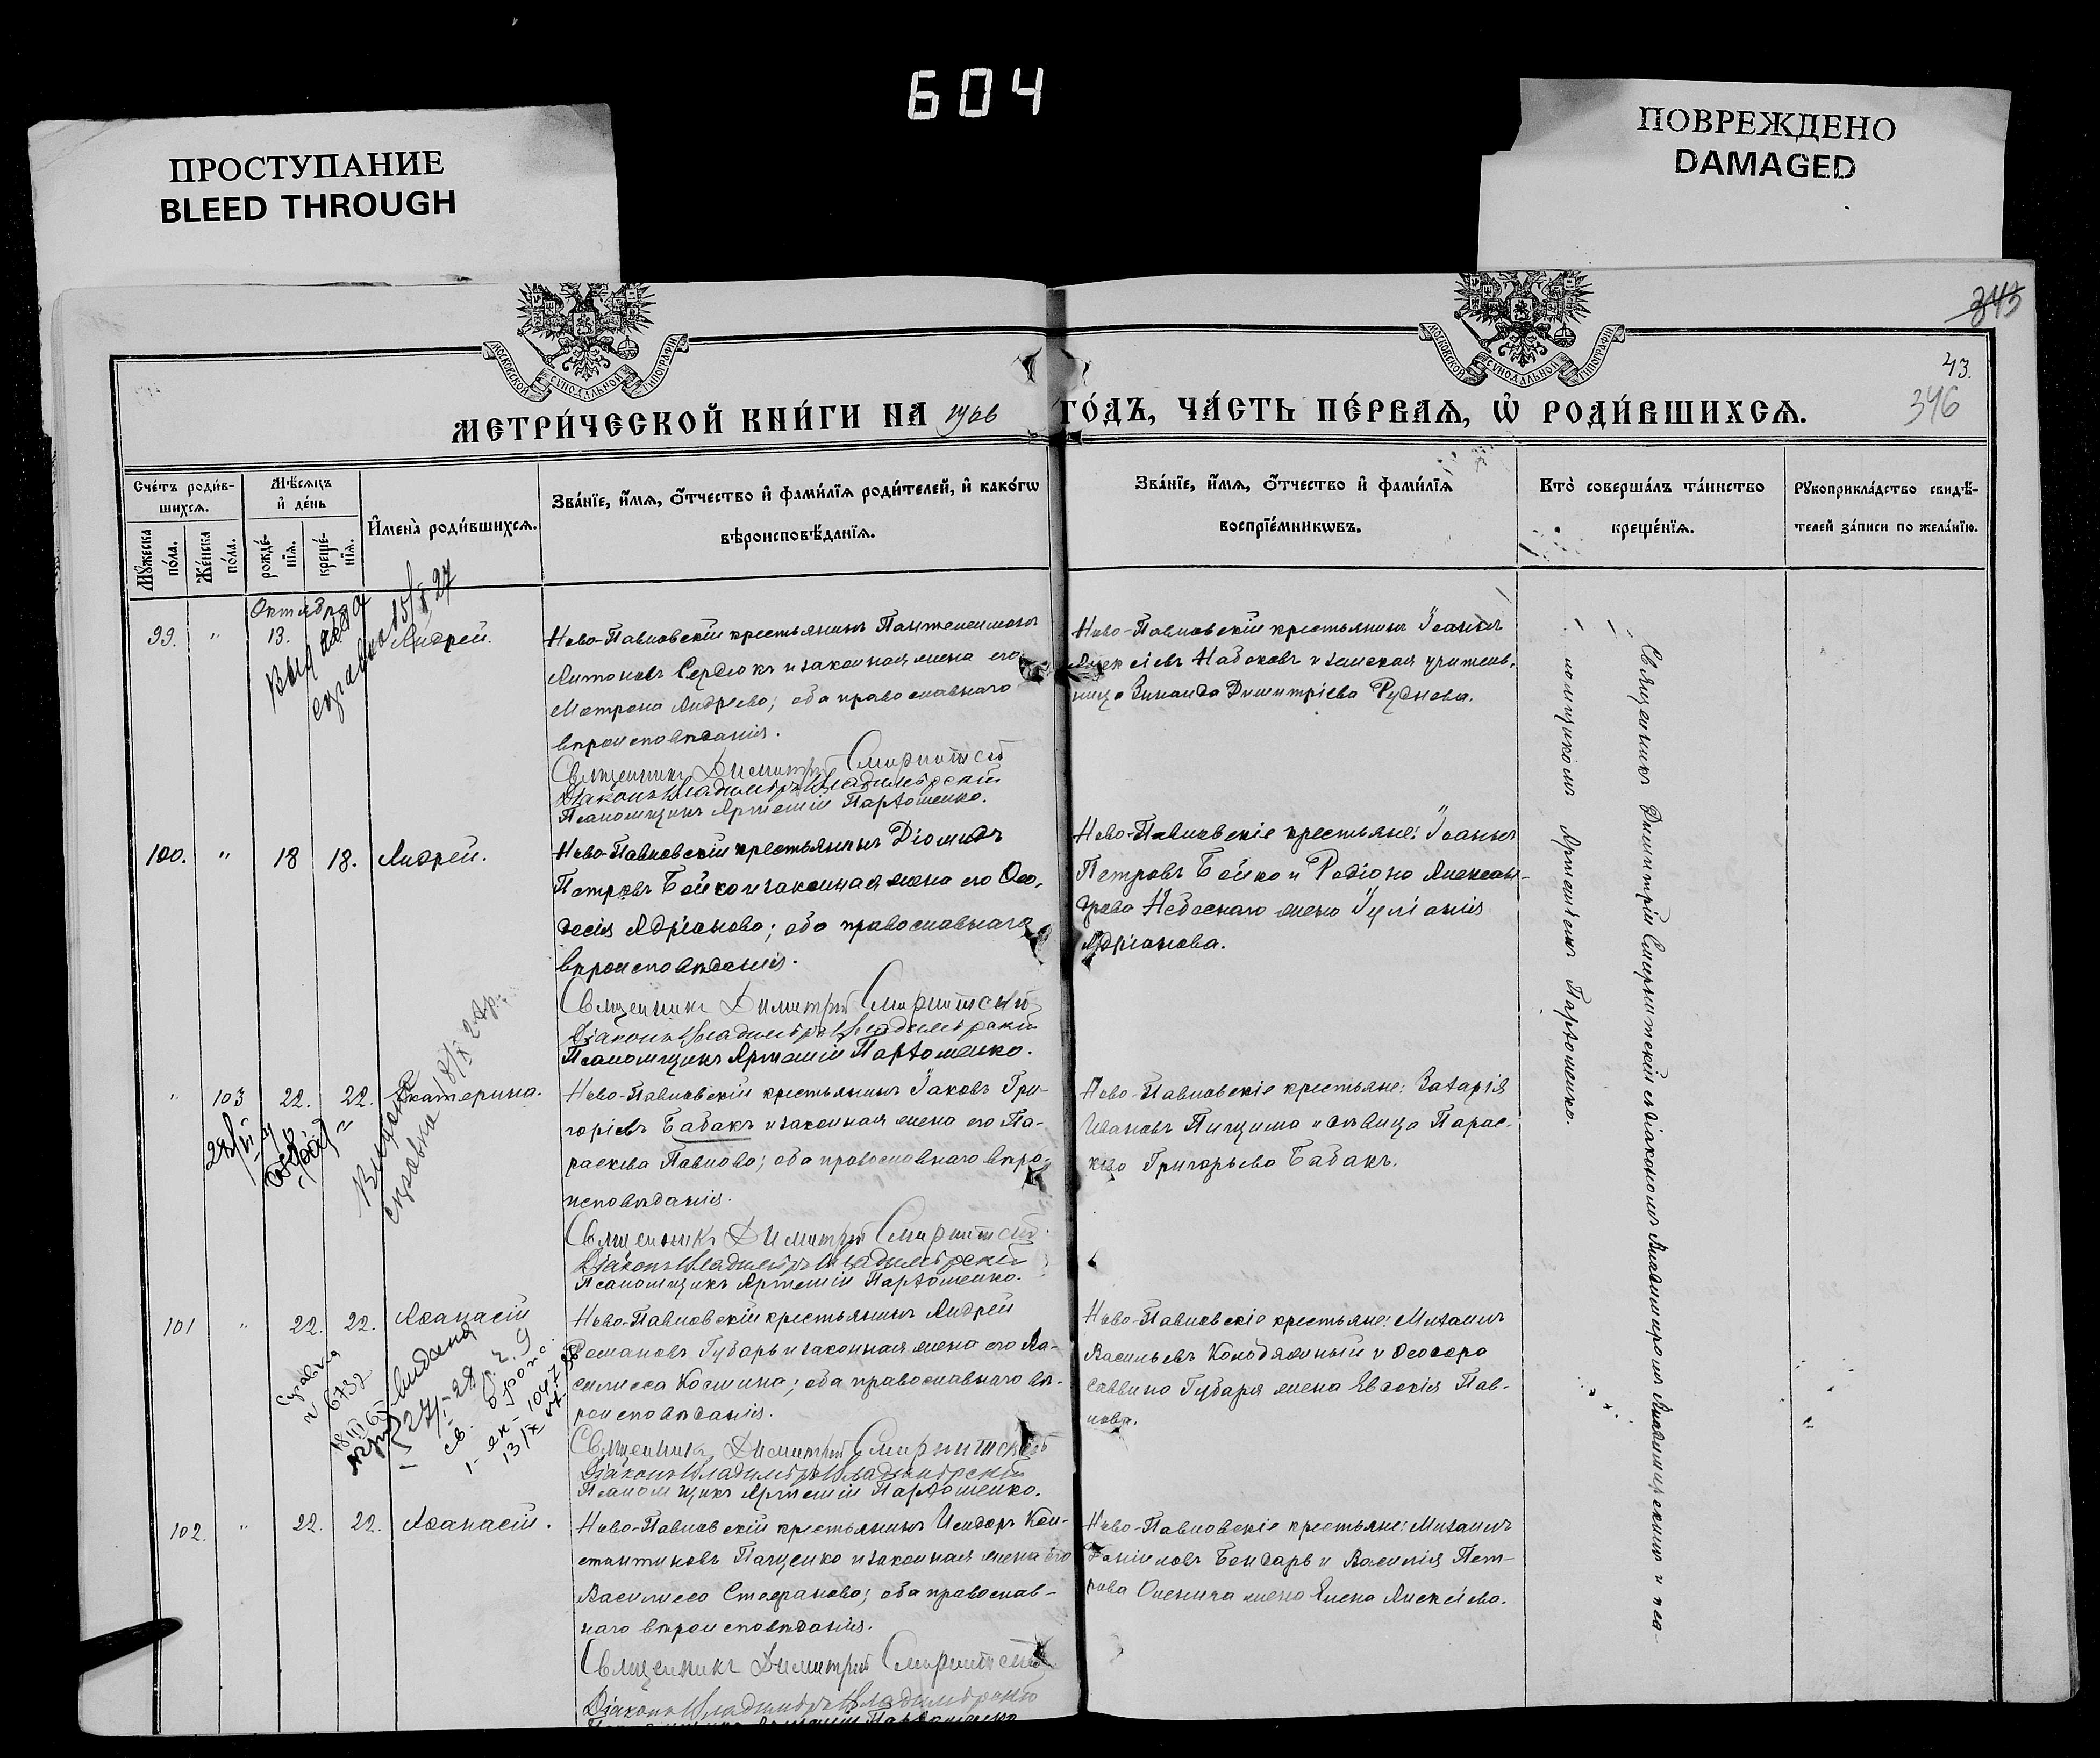 604
ПРОСТУПАНИЕ
BLEED THROUGH
ПОВРЕЖДЕНО
DAMAGED
345
43.
346
МОСКОВСКОЙ СУНОДАЛЬНОЙ ТИПОГРАФІИ
МОСКОВСКОЙ СУНОДАЛЬНОЙ ТИПОГРАФІИ
МЕТРИ́ЧЕСКОЙ КНИ́ГИ НА 1906 ГО́ДЪ, ЧА́СТЬ ПЕ́РВАЯ, Ѡ РОДИ́ВШИХСЯ.
Сче́тъ роди́в-
шихся.
Мꙋ́жеска по́ла.
Же́нска по́ла.
Мѣ́сяцъ
и де́нь
рожде́-
нїя.
креще́-
нїя.
И҆мена̀ роди́вшихся.
Зва́нїе, и҆́мя, ѻ҆́тчество и҆ фами́лїя роди́телей, и҆ како́гѡ
вѣроисповѣ́данїя.
Зва́нїе, и҆́мя, ѻ҆́тчество и҆ фами́лїя
воспрїе́мникѡвъ.
Кто̀ соверша́лъ та́инство
креще́нїя.
Рꙋкоприкла́дство свидѣ́-
телей за́писи по жела́нїю.
Октября
99. " 13. Андрей.
Ново-Павловскій крестьянинъ Пантелеимонъ
Антоновъ Сердюкъ и законная жена его
Матрона Андреева; оба православнаго
вѣроисповѣданія.
Священникъ Димитрій Смирнитскій
Діаконъ Владиміръ Владимірскій
Псаломщикъ Артемій Пархоменко.
Ново-Павловскій крестьянинъ Іоаннъ
Алексіевъ Набоковъ и земская учитель-
ница Зинаида Димитріева Руднева.
Выдана
справка 15/ 27
100. " 18 18. Андрей.
Ново-Павловскій крестьянинъ Діомидъ
Петровъ Бойко и законная жена его Ѳео-
досія Адріанова; оба православнаго
вѣроисповѣданія.
Священникъ Димитрій Смирнитскій
Діаконъ Владиміръ Владимірскій
Псаломщикъ Артемій Пархоменко.
Ново-Павловскіе крестьяне: Іоаннъ
Петровъ Бойко и Родіона Алексан-
дрова Небеснаго жена Іуліанія
Адріанова.
" 103 22. 22. Екатерина.
Ново-Павловскій крестьянинъ Іаковъ Гри-
горіевъ Бабакъ и законная жена его Па-
раскева Павлова; оба православнаго вѣро-
исповѣданія.
Священникъ Димитрій Смирнитскій
Діаконъ Владиміръ Владимірскій
Псаломщикъ Артемій Пархоменко.
Ново-Павловскіе крестьяне: Захарія
Ивановъ Пищима и дѣвица Парас-
кева Григорьева Бабакъ.
Выдана
справка
101 " 22. 22. Аѳанасій
Ново-Павловскій крестьянинъ Андрей
Романовъ Губарь и законная жена его Ва-
силисса Космина; оба православнаго вѣ-
роисповѣданія.
Священникъ Димитрій Смирнитскій
Діаконъ Владиміръ Владимірскій
Псаломщикъ Артемій Пархоменко.
Ново-Павловскіе крестьяне: Михаилъ
Васильевъ Колодяжный и Ѳеодора
Саввина Губаря жена Евдокія Пав-
лова.
Справка
N 6732
Выдана
102. " 22. 22. Аѳанасій.
Ново-Павловскій крестьянинъ Исидоръ Кон-
стантиновъ Пащенко и законная жена его
Василисса Стефанова; оба православ-
наго вѣроисповѣданія.
Священникъ Димитрій Смирнитскій
Діаконъ Владиміръ Владимірскій
Псаломщикъ Артемій Пархоменко
Ново-Павловскіе крестьяне: Михаилъ
Даніиловъ Бондарь и Василія Пет-
рова жена Елена Алексіева.
Священникъ Димитрій Смирнитскій съ діакономъ Владиміромъ Владимірскимъ и пса-
ломщикомъ Артеміемъ Пархоменко.